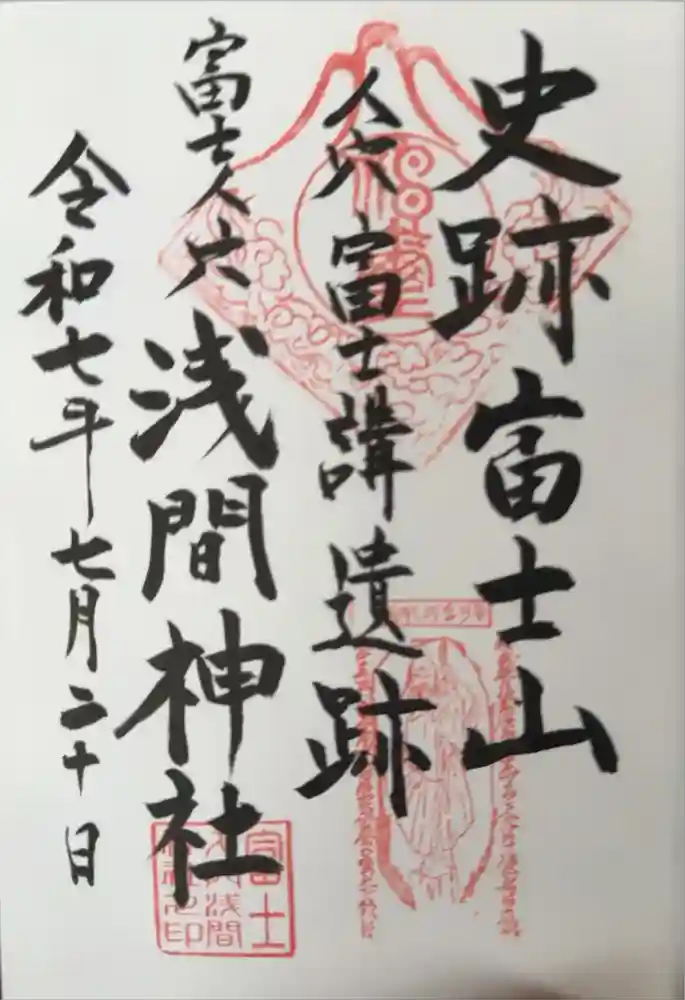 史跡富士山
人穴富士講遺跡
富士人穴浅間神社
令和七年七月二十日
富士
人穴浅間
神社之印